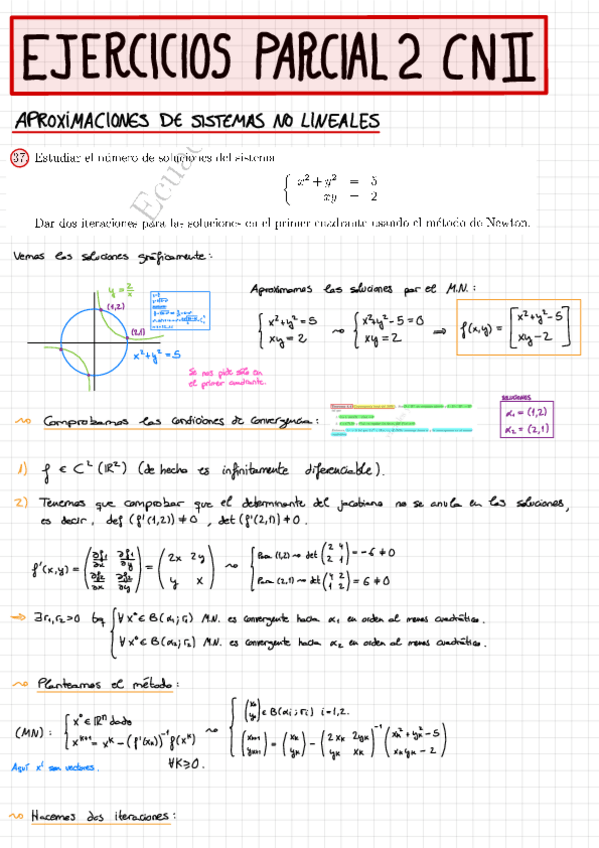 EJERCICIOS PARCIAL 2 CN II
APROXIMACIONES DE SISTEMAS NO LINEALES
37 Estudiar el número de soluciones del sistema
{ x² + y² = 5
xy = 2
Dar dos iteraciones para las soluciones en el primer cuadrante usando el método de Newton.
Vemos las soluciones gráficamente:
y = 2/x
(1,2)
(2,1)
x²+y² = 5
Se nos pide sólo en
el primer cuadrante.
Aproximamos las soluciones por el M.N.:
{ x²+y² = 5 ~> { x²+y²-5 = 0 => f(x,y) = [ x²+y²-5
xy = 2 xy = 2 xy-2 ]
SOLUCIONES
α₁ = (1,2)
α₂ = (2,1)
~> Comprobamos las condiciones de convergencia:
1) f ∈ C² (ℝ²) (de hecho es infinitamente diferenciable).
2) Tenemos que comprobar que el determinante del jacobiano no se anula en las soluciones,
es decir, det (f'(1,2)) ≠ 0 , det (f'(2,1)) ≠ 0.
f'(x,y) = ( ∂f₁/∂x ∂f₁/∂y ; ∂f₂/∂x ∂f₂/∂y ) = ( 2x 2y ; y x ) ~> { Para (1,2) ~> det ( 2 4 ; 2 1 ) = -6 ≠ 0
Para (2,1) ~> det ( 4 2 ; 1 2 ) = 6 ≠ 0
=> ∃ r₁,r₂ > 0 tq { ∀ x⁰ ∈ B(α₁; r₁) M.N. es convergente hacia α₁ en orden al menos cuadrático.
∀ x⁰ ∈ B(α₂; r₂) M.N. es convergente hacia α₂ en orden al menos cuadrático.
~> Planteamos el método:
(MN): { x⁰ ∈ ℝⁿ dado ~> { (x₀ ; y₀) ∈ B(αi; ri) i=1,2.
x^{k+1} = x^k - (f'(x_k))^{-1} f(x^k) (x_{k+1} ; y_{k+1}) = (x_k ; y_k) - ( 2x_k 2y_k ; y_k x_k )^{-1} ( x_k² + y_k² - 5 ; x_k y_k - 2 )
∀k ≥ 0.
Aquí xⁱ son vectores.
~> Hacemos dos iteraciones: